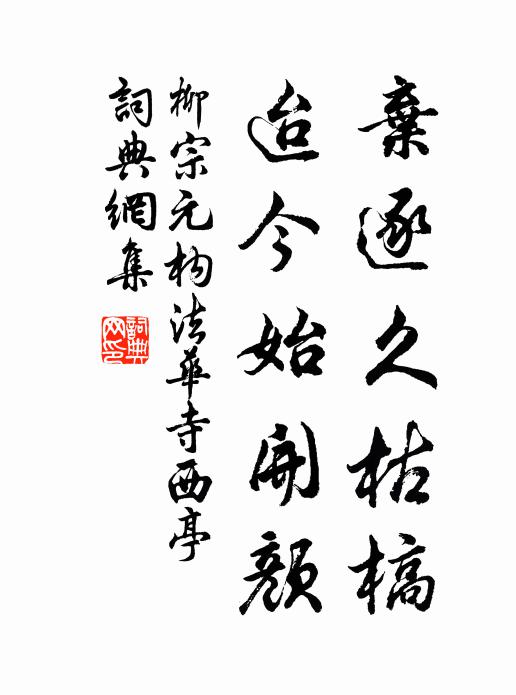 棄逐久枯槁
迨今始開顔
柳宗元构法華寺西亭
詞典網集
詞典网印